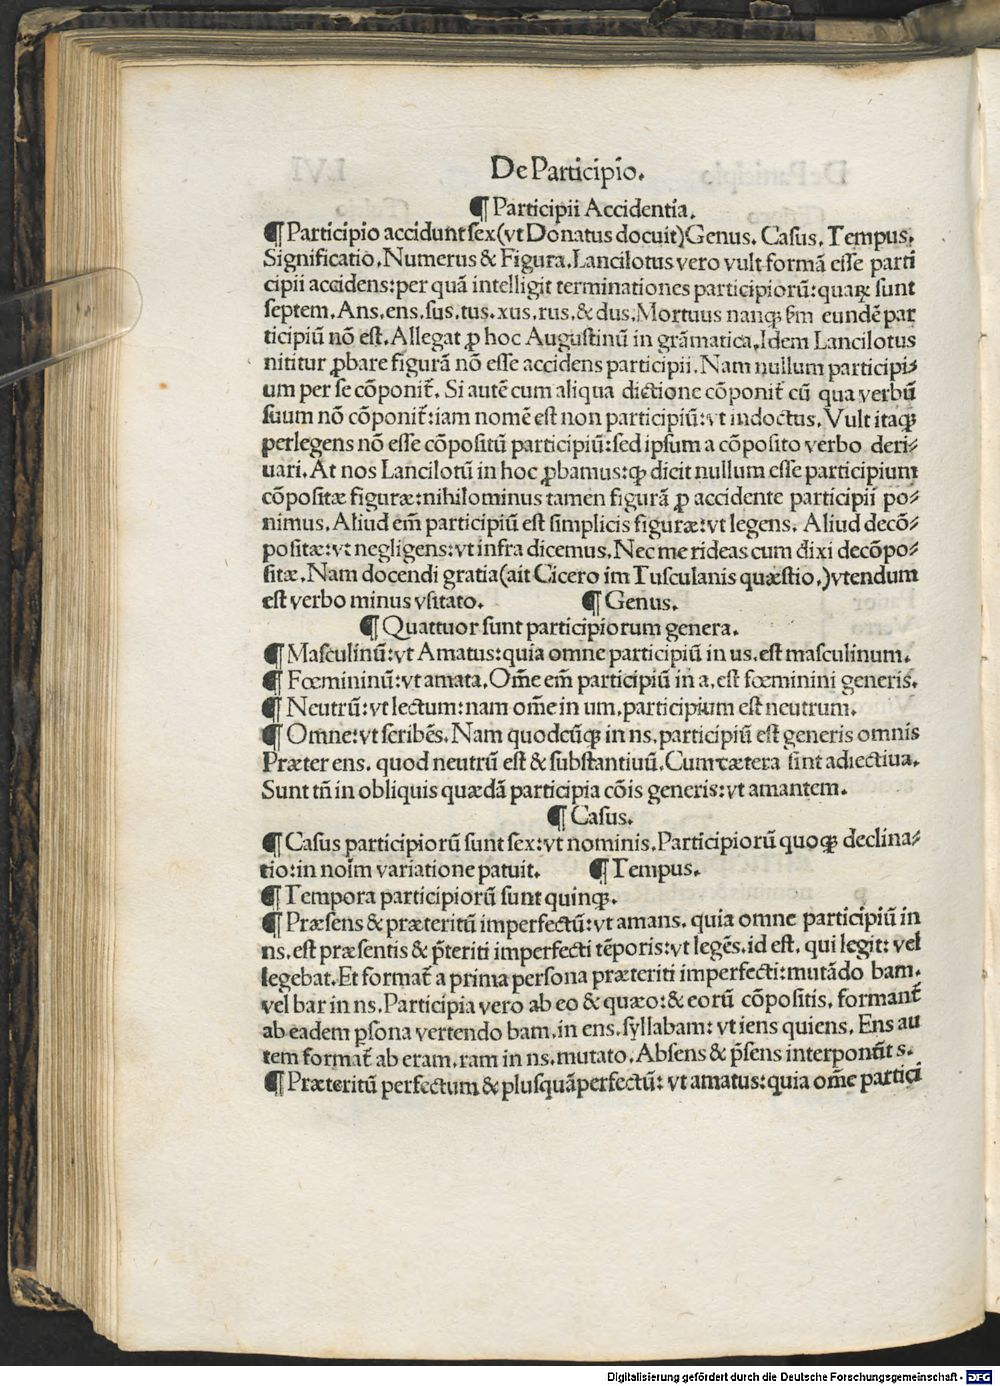 De Participio.
¶ Participii Accidentia.
¶ Participio accidunt sex(vt Donatus docuit)Genus. Casus. Tempus.
Significatio. Numerus & Figura. Lancilotus vero vult formã esse parti
cipii accidens: per quã intelligit terminationes participiorũ: quaꝝ sunt
septem. Ans, ens, sus, tus, xus, rus, & dus. Mortuus nanqꝫ ẜm eundẽ par
ticipiũ nõ est. Allegat ꝓ hoc Augustinũ in grãmatica. Idem Lancilotus
nititur ꝓbare figurã nõ esse accidens participii. Nam nullum participi⸗
um per se cõponit̃. Si autẽ cum aliqua dictione cõponit̃ cũ qua verbũ
suum nõ cõponit̃: iam nomẽ est non participiũ: vt indoctus. Vult itaqꝫ
perlegens nõ esse cõpositũ participiũ: sed ipsum a cõposito verbo deri⸗
uari. At nos Lancilotũ in hoc ꝓbamus: qꝫ dicit nullum esse participium
cõpositæ figuræ: nihilominus tamen figurã ꝓ accidente participii po⸗
nimus. Aliud em̃ participiũ est simplicis figuræ: vt legens. Aliud decõ⸗
positæ: vt negligens: vt infra dicemus. Nec me rideas cum dixi decõpo⸗
sitæ. Nam docendi gratia(ait Cicero im Tusculanis quæstio.)vtendum
est verbo minus vsitato. ¶ Genus.
¶ Quattuor sunt participiorum genera.
¶ Masculinũ: vt Amatus: quia omne participiũ in us, est masculinum.
¶ Fœmininũ: vt amata. Om̃e em̃ participiũ in a, est fœminini generis.
¶ Neutrũ: vt lectum: nam om̃e in um, participium est neutrum.
¶ Omne: vt scribẽs. Nam quodcũqꝫ in ns, participiũ est generis omnis
Præter ens. quod neutrũ est & substantiuũ. Cum cætera sint adiectiua.
Sunt tñ in obliquis quædã participia cõis generis: vt amantem.
¶ Casus.
¶ Casus participiorũ sunt sex: vt nominis. Participiorũ quoqꝫ declina⸗
tio: in noĩm variatione patuit. ¶ Tempus.
¶ Tempora participiorũ sunt quinqꝫ.
¶ Præsens & præteritũ imperfectũ: vt amans. quia omne participiũ in
ns, est præsentis & p̃teriti imperfecti tẽporis: vt legẽs. id est, qui legit: vel
legebat. Et format̃ a prima persona præteriti imperfecti: mutãdo bam,
vel bar in ns. Participia vero ab eo & quæo: & eorũ cõpositis, formant̃
ab eadem ꝑsona vertendo bam, in ens, syllabam: vt iens quiens. Ens au
tem format̃ ab eram, ram in ns, mutato. Absens & p̃sens interponũt s.
¶ Præteritũ perfectum & plusquãperfectũ: vt amatus: quia om̃e partici
Digitalisierung gefördert durch die Deutsche Forschungsgemeinschaft - DFG